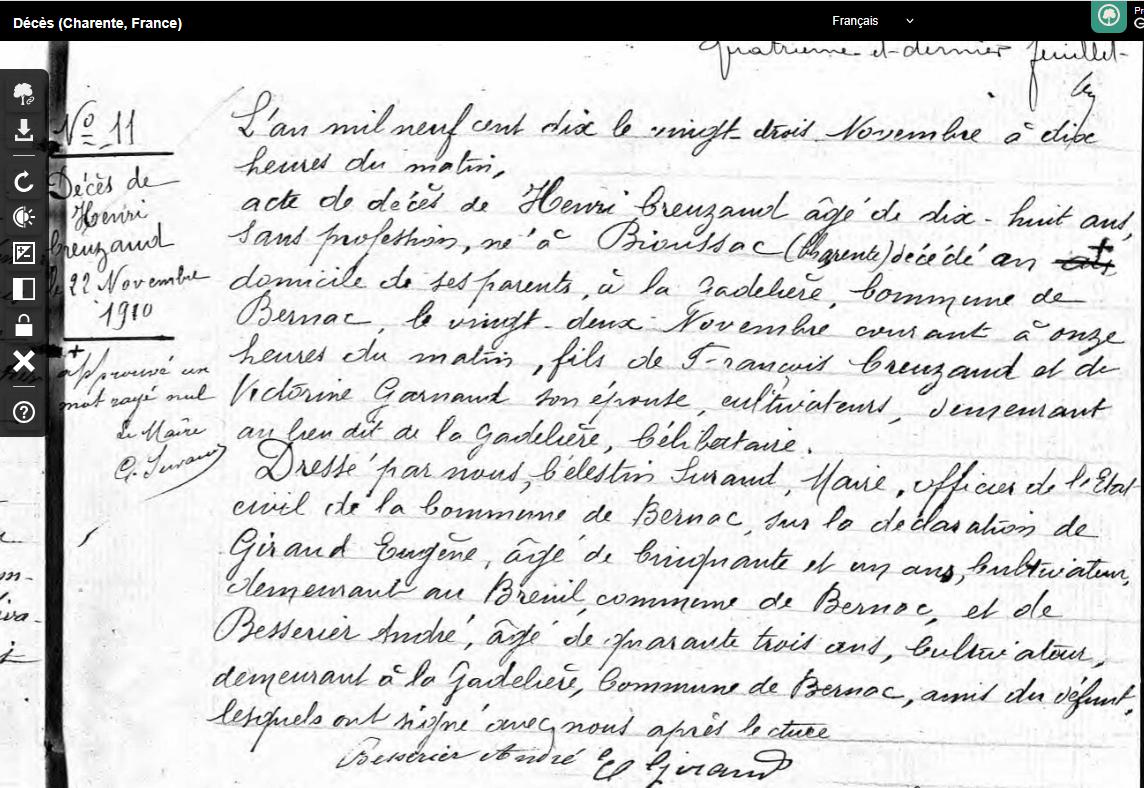 Décès (Charente, France)
Français
quatrième et dernier feuillet
No 11
Décès de
Henri
Creuzaud
le 22 Novembre
1910
+
approuvé un
mot rayé nul
Le Maire
L'an mil neuf cent dix le vingt trois Novembre à dix
heures du matin,
acte de décès de Henri Creuzaud âgé de dix-huit ans,
sans profession, né à Bioussac (Charente) décédé au +
domicile de ses parents, à la Gadelière, Commune de
Bernac, le vingt-deux Novembre courant à onze
heures du matin, fils de François Creuzaud et de
Victorine Garnaud son épouse, cultivateurs, demeurant
au lieu dit de la Gadelière, Célibataire.
Dressé par nous, Célestin Suraud, Maire, officier de l'Etat
civil de la Commune de Bernac sur la déclaration de
Giraud Eugène, âgé de Cinquante et un ans, Cultivateur,
demeurant au Breuil, commune de Bernac, et de
Besserier André, âgé de quarante trois ans, Cultivateur,
demeurant à la Gadelière, Commune de Bernac, amis du défunt,
lesquels ont signé avec nous après lecture
Besserier André E Giraud